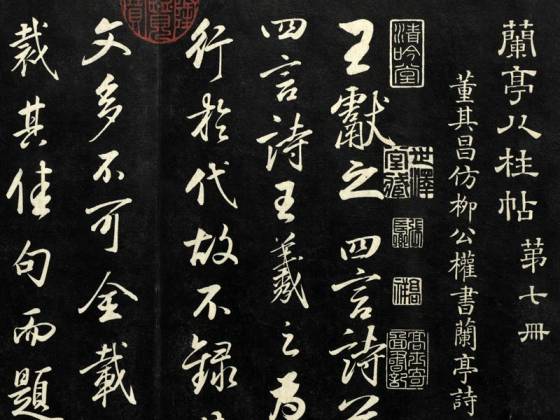 蘭亭八柱帖 第七冊
董其昌仿柳公權書蘭亭詩
清吟堂
高士奇圖書記
王獻之四言詩
四言詩王羲之為
行於代故不錄
文多不可全載
裁其佳句而題